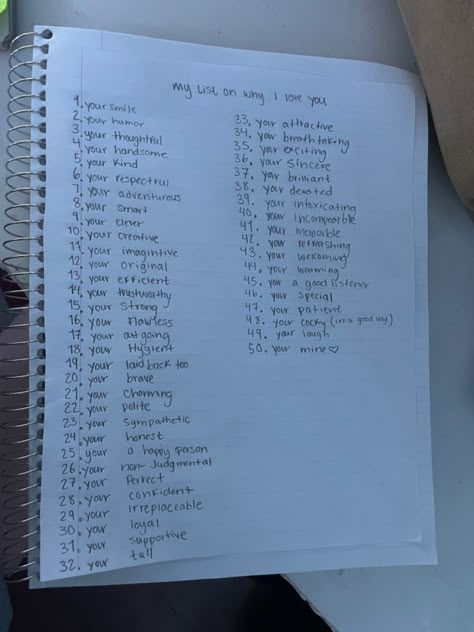 my list on why I love you
1. your smile
2. your humor
3. your thoughtful
4. your handsome
5. your kind
6. your respectful
7. your adventurous
8. your smart
9. your clever
10. your creative
11. your imagintive
12. your original
13. your efficient
14. your trustworthy
15. your strong
16. your flawless
17. your outgoing
18. your Hygient
19. your laid back too
20. your brave
21. your charming
22. your polite
23. your sympathetic
24. your honest
25. your a happy person
26. your non-Judgmental
27. your Perfect
28. your confident
29. your irreplaceable
30. your loyal
31. your supportive
32. your tall
33. your attractive
34. your breathtaking
35. your exciting
36. your sincere
37. your brilliant
38. your devoted
39. your intoxicating
40. your incompeable
41. your memorble
42. your refrashing
43. your welcoming
44. your warming
45. your a good listener
46. your special
47. your patient
48. your cocky (in a good way)
49. your laugh
50. your mine ♡